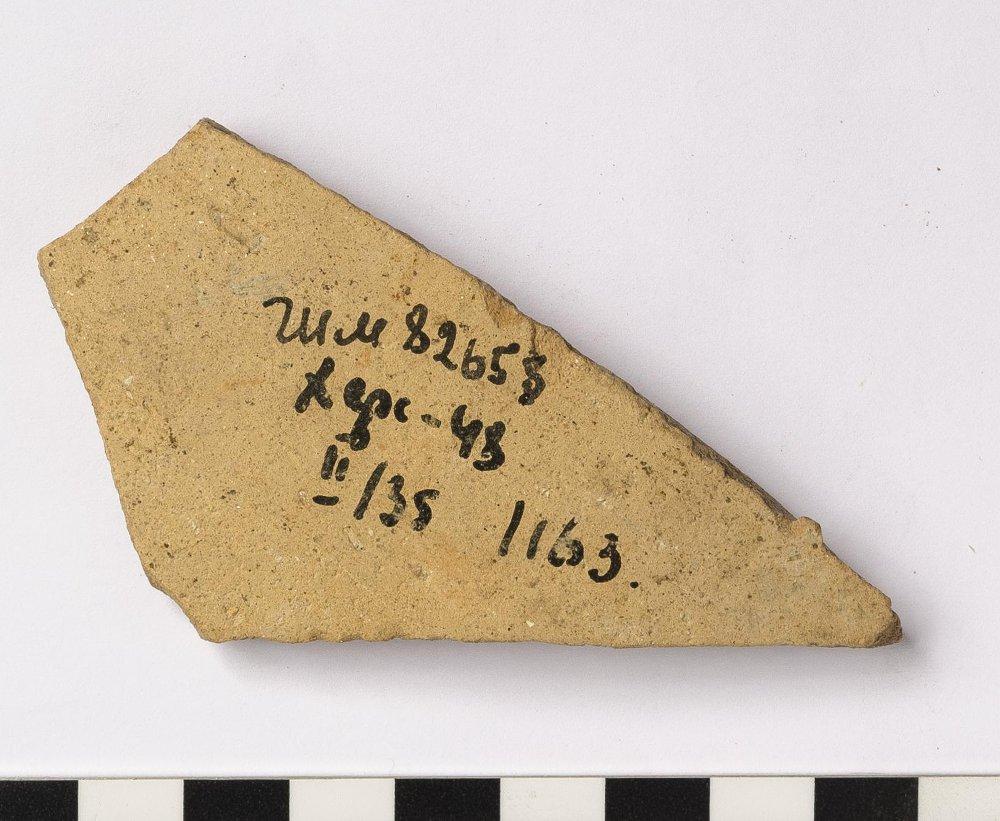 ГИМ 82653
Херс-43
II/35 1163.